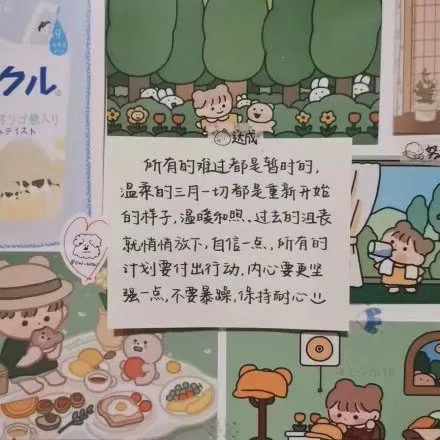 クル
®
オリゴ糖入り
達成
努
所有的难过都是暂时的,
温柔的三月一切都是重新开始
的样子,温暖和煦.过去的沮丧
就悄悄放下,自信一点,所有的
计划要付出行动,内心要更坚
强一点,不要暴躁,保持耐心